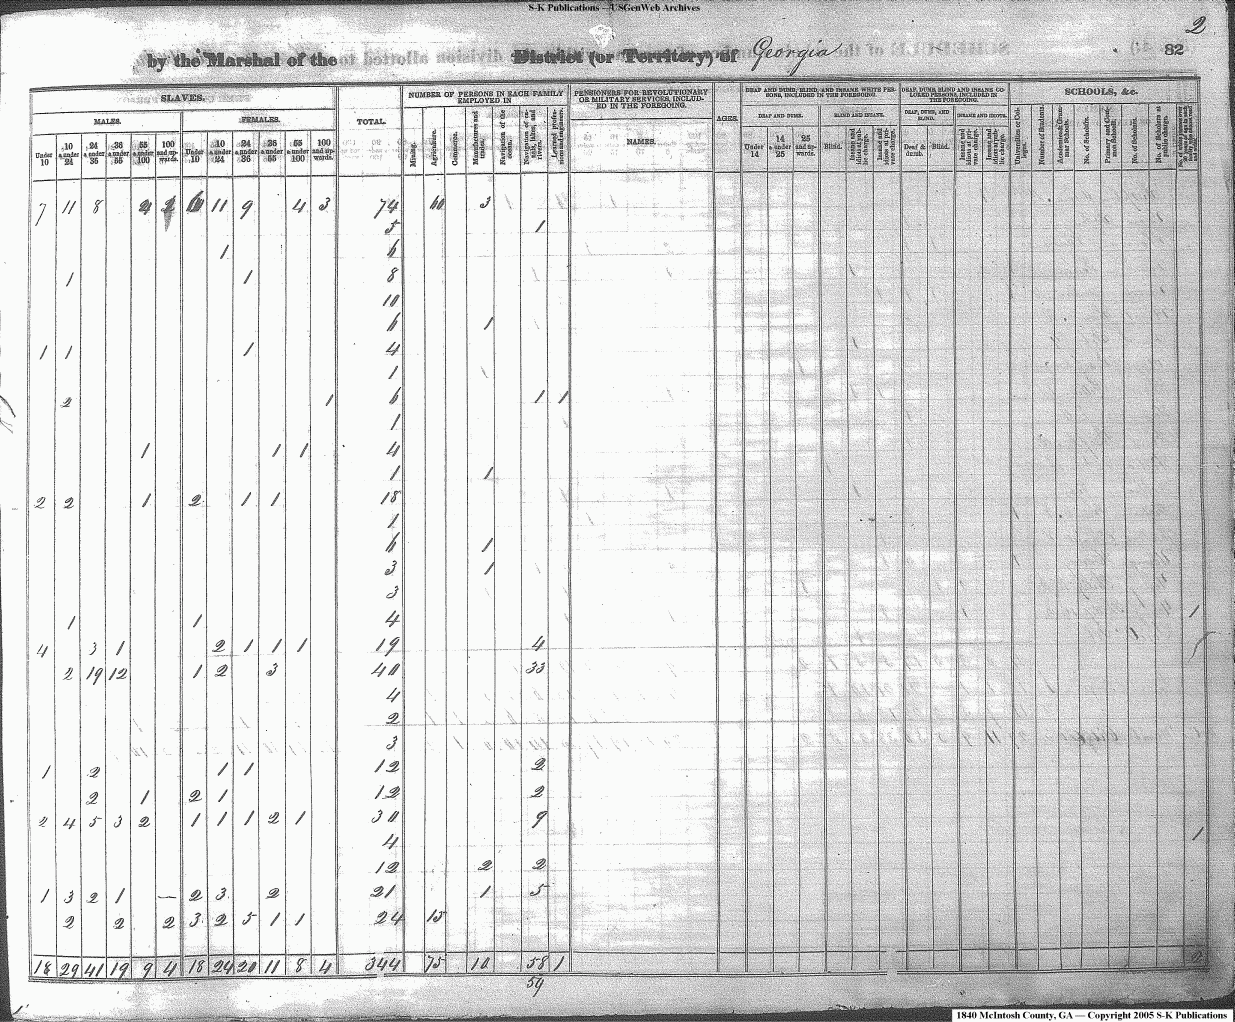 S-K Publications – USGenWeb Archives
2
by the Marshal of the District (or Territory) of Georgia 82
SLAVES. TOTAL. NUMBER OF PERSONS IN EACH FAMILY EMPLOYED IN PENSIONERS FOR REVOLUTIONARY OR MILITARY SERVICES, INCLUDED IN THE FOREGOING. AGES. DEAF AND DUMB, BLIND, AND INSANE WHITE PERSONS, INCLUDED IN THE FOREGOING. DEAF, DUMB, BLIND AND INSANE COLORED PERSONS, INCLUDED IN THE FOREGOING. SCHOOLS, &c.
MALES. FEMALES. NAMES. DEAF AND DUMB. BLIND AND INSANE. DEAF, DUMB, AND BLIND. INSANE AND IDIOTS.
Under 10 10 & under 24 24 & under 36 36 & under 55 55 & under 100 100 and upwards. Under 10 10 & under 24 24 & under 36 36 & under 55 55 & under 100 100 and upwards. Mining. Agriculture. Commerce. Manufactures and trades. Navigation of the ocean. Navigation of canals, lakes, and rivers. Learned professions and engineers. Under 14 14 & under 25 25 and upwards. Blind. Insane and idiots at public charge. Insane and idiots at private charge. Deaf & dumb. Blind. Insane and idiots at private charge. Insane and idiots at public charge. Universities or Colleges. Number of Students. Academies & Grammar Schools. No. of Scholars. Primary and Common Schools. No. of Scholars. No. of Scholars at public charge.
7 11 8 11 9 4 3 74 60 3
5 1
1 6
1 1 8
10
6 1
1 1 1 4
1
2 1 6 1 1
1
1 1 1 4
1 1
2 2 1 2 1 1 18
1
6 1
3 1
3
1 1 4 1
4 3 1 2 1 1 1 19 4
2 19 12 1 2 3 40 33
4
2
3
1 2 1 1 12 2
2 1 2 1 12 2
2 4 5 3 2 1 1 1 2 1 30 9 1
4
12 2 2
1 3 2 1 — 2 3 2 21 1 5
2 2 2 3 2 5 1 1 24 15
18 29 41 19 9 4 18 24 20 11 8 4 344 75 10 58 1 2
59
1840 McIntosh County, GA — Copyright 2005 S-K Publications